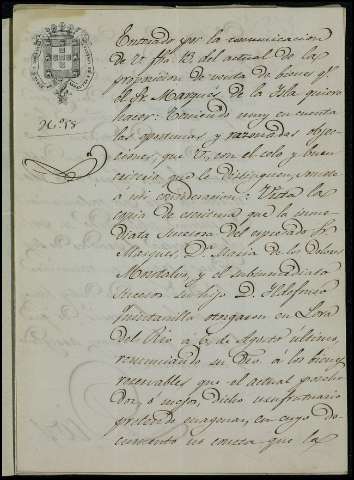 Enterado por la comunicacion
de V. fha. 13. del actual de las
proposicion de venta de bienes q.e
el Sr. Marques de la Isla quiere
hacer: Teniendo muy en cuenta
las oportunas y razonadas obje-
ciones, que V., con el celo y buen
que le distinguen, somete
á mi consideracion: Vista la
copia de escritura que la inme-
diata sucesora del espresado Sr.
Marques, D.a Maria de los Dolores
y el submediato
sucesor su hijo D. Ildefonso
Quintanilla otorgaron en Lora
del Rio á 6 de Agosto último,
renunciando su dro. á los bienes
reservables que el actual posehe-
dor, ó mejor, dicho usufructuario
pretende enagenar, en cuyo do-
cumento no consta que la